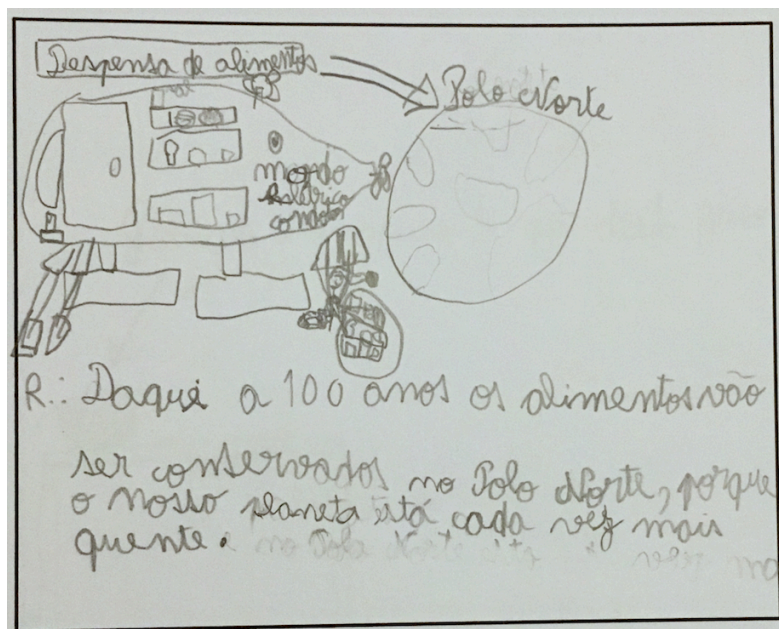 Despensa de alimentos
Polo Norte
R.: Daqui a 100 anos os alimentos vão
ser conservados no Polo Norte, porque
o nosso planeta está cada vez mais
quente.